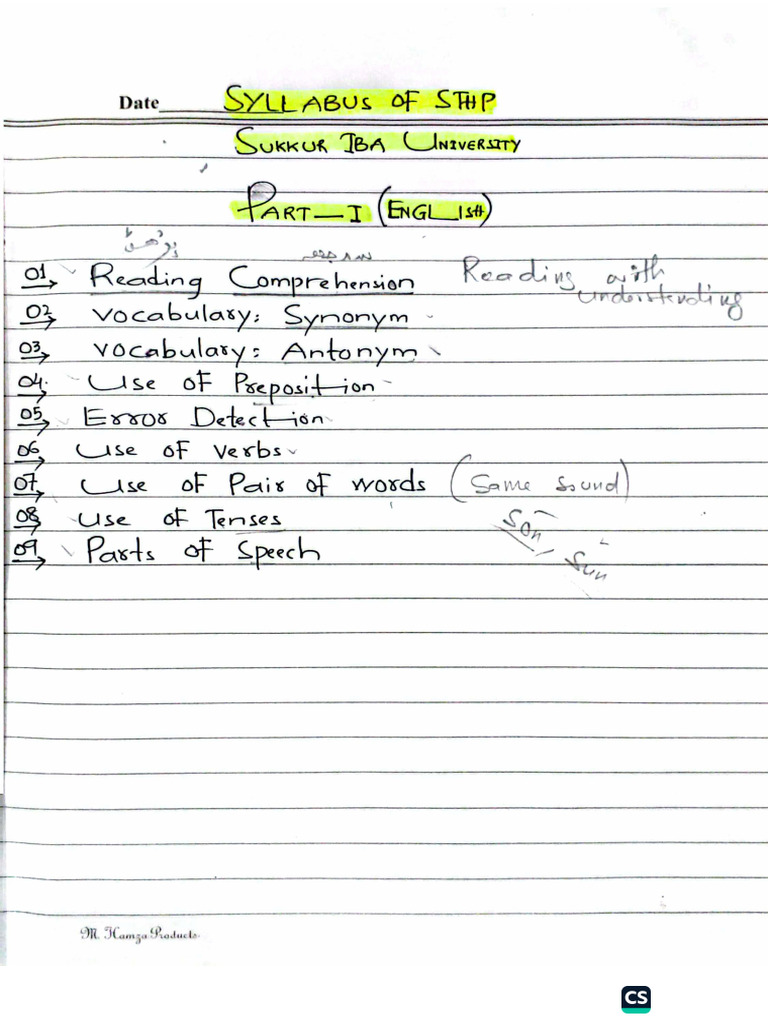 Date SYLLABUS OF STHP
SUKKUR IBA UNIVERSITY
PART-I (ENGLISH)
پڑھنا سمجھ
01 Reading Comprehension Reading with understanding
02 Vocabulary: Synonym
03 Vocabulary: Antonym
04 Use of Preposition
05 Error Detection
06 Use of verbs
07 Use of Pair of words (Same sound)
08 Use of Tenses son, sun
09 Parts of Speech
M. Hamza Products
CS